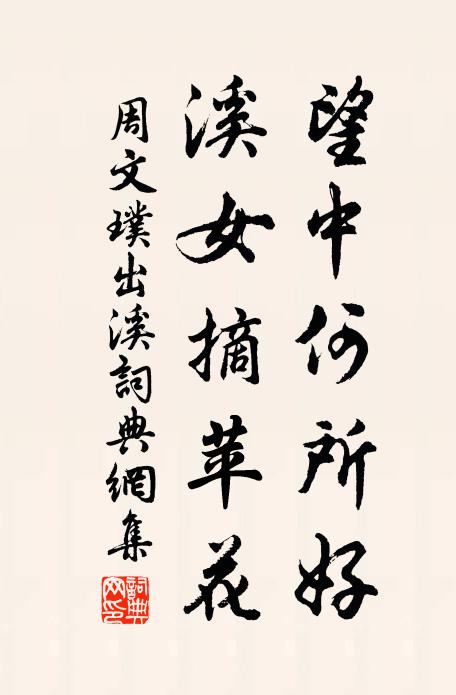 望中何所好
溪女摘苹花
周文璞出溪詞典網集
詞典网印